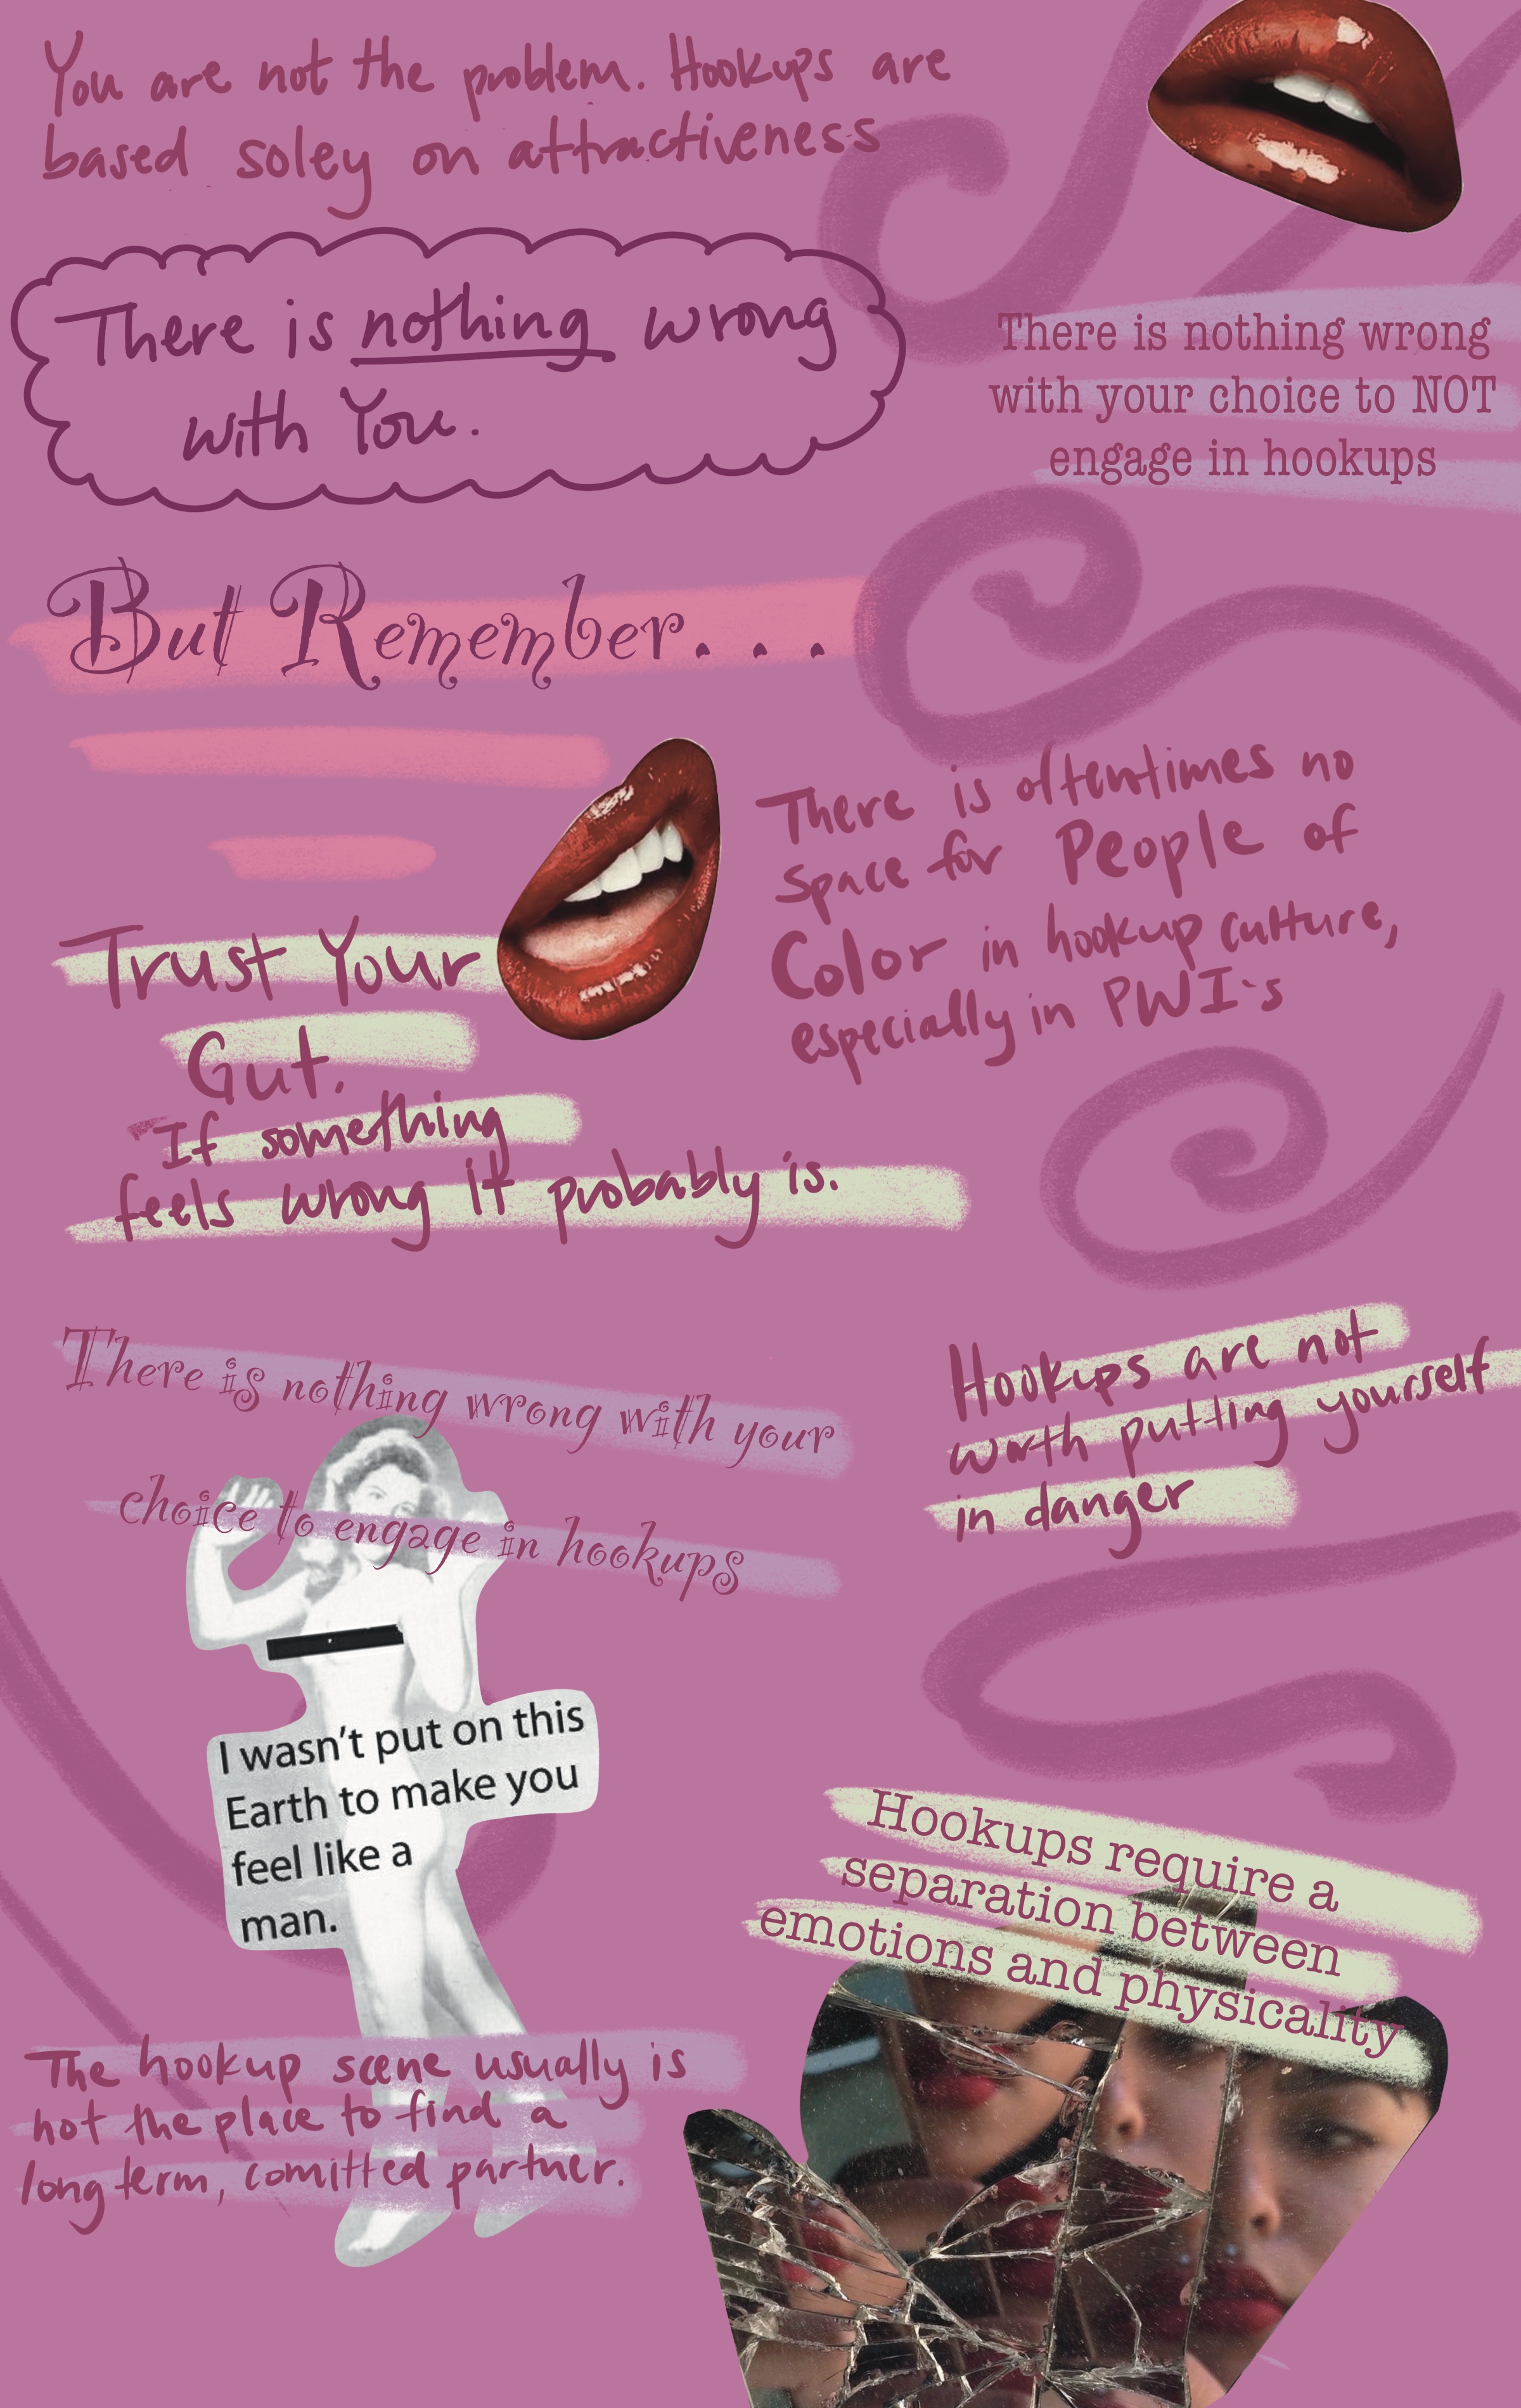 You are not the problem. Hookups are
based soley on attractiveness
There is nothing wrong
with You.
There is nothing wrong
with your choice to NOT
engage in hookups
But Remember...
There is oftentimes no
space for People of
Color in hookup culture,
especially in PWI's
Trust Your
Gut.
If something
feels wrong it probably is.
There is nothing wrong with your
choice to engage in hookups
Hookups are not
worth putting yourself
in danger
I wasn't put on this
Earth to make you
feel like a
man.
Hookups require a
separation between
emotions and physicality
The hookup scene usually is
not the place to find a
long term, comitted partner.